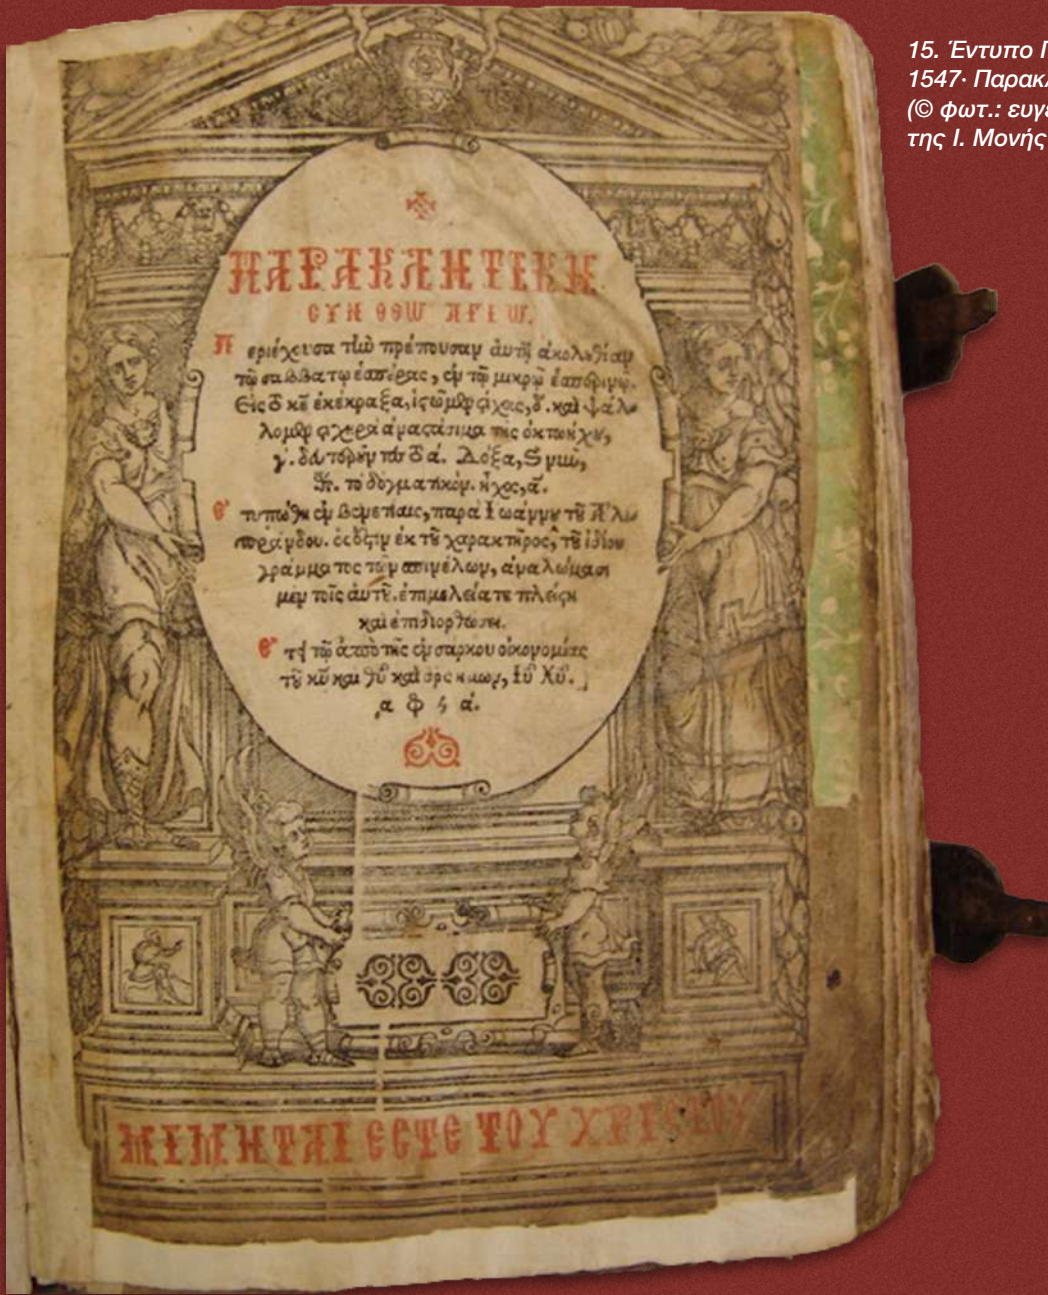 15. Έντυπο
1547· Παρακλ
(© φωτ.: ευγε
της Ι. Μονής
ΠΑΡΑΚΛΗΤΙΚΗ
ΟΥΝ ΘΕΩ ΑΓΙΩ.
Περιέχουσα τὴν πρέπουσαν αὐτῇ ἀκολουθίαν
τῷ σαββάτῳ ἑσπέρας, ἐν τῷ μικρῷ ἑσπερινῷ.
Εἰς ὃ κε ἐκέκραξα, ἱςῶμεν ςίχους, δ. καὶ ψάλ-
λομεν ςιχηρὰ ἀναςάσιμα τῆς ὀκτωήχου,
γ. Δόξα, καὶ νῦν,
τὸ δογματικόν. ἦχος, α.
Ἐτυπώθη ἐν Βενετίαις, παρὰ Ἰωάννου τοῦ
ἐκ τοῦ χαρακτῆρος, τοῦ ἰδίου
γράμματος τῶν σπινέλων, ἀναλώμασι
μὲν τοῖς αὐτοῦ. ἐπιμελείᾳ τε πλείςῃ
καὶ ἐπιδιορθώσει.
Ἔτη τῷ ἀπὸ τῆς ἐνσάρκου οἰκονομίας
τοῦ κυ καὶ θυ καὶ σρς ἡμῶν, ἰυ Χυ.
ΜΙΜΗΤΑΙ ΕϹΤΕ ΤΟΥ ΧΡΙϹΤΟΥ